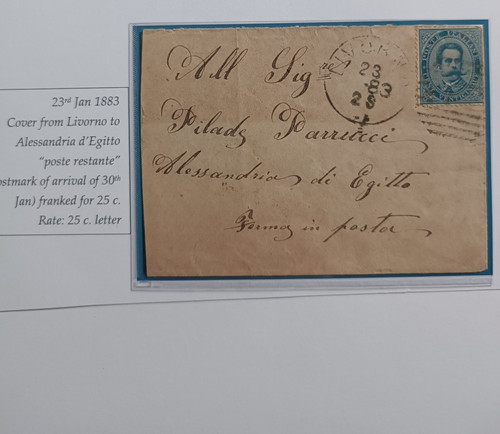 23rd Jan 1883
Cover from Livorno to
Alessandria d'Egitto
"poste restante"
ostmark of arrival of 30th
Jan) franked for 25 c.
Rate: 25 c. letter
All Sigre
Pilade Parrucci
Alessandria di Egitto
Ferma in posta
23
83
POSTE ITALIANE